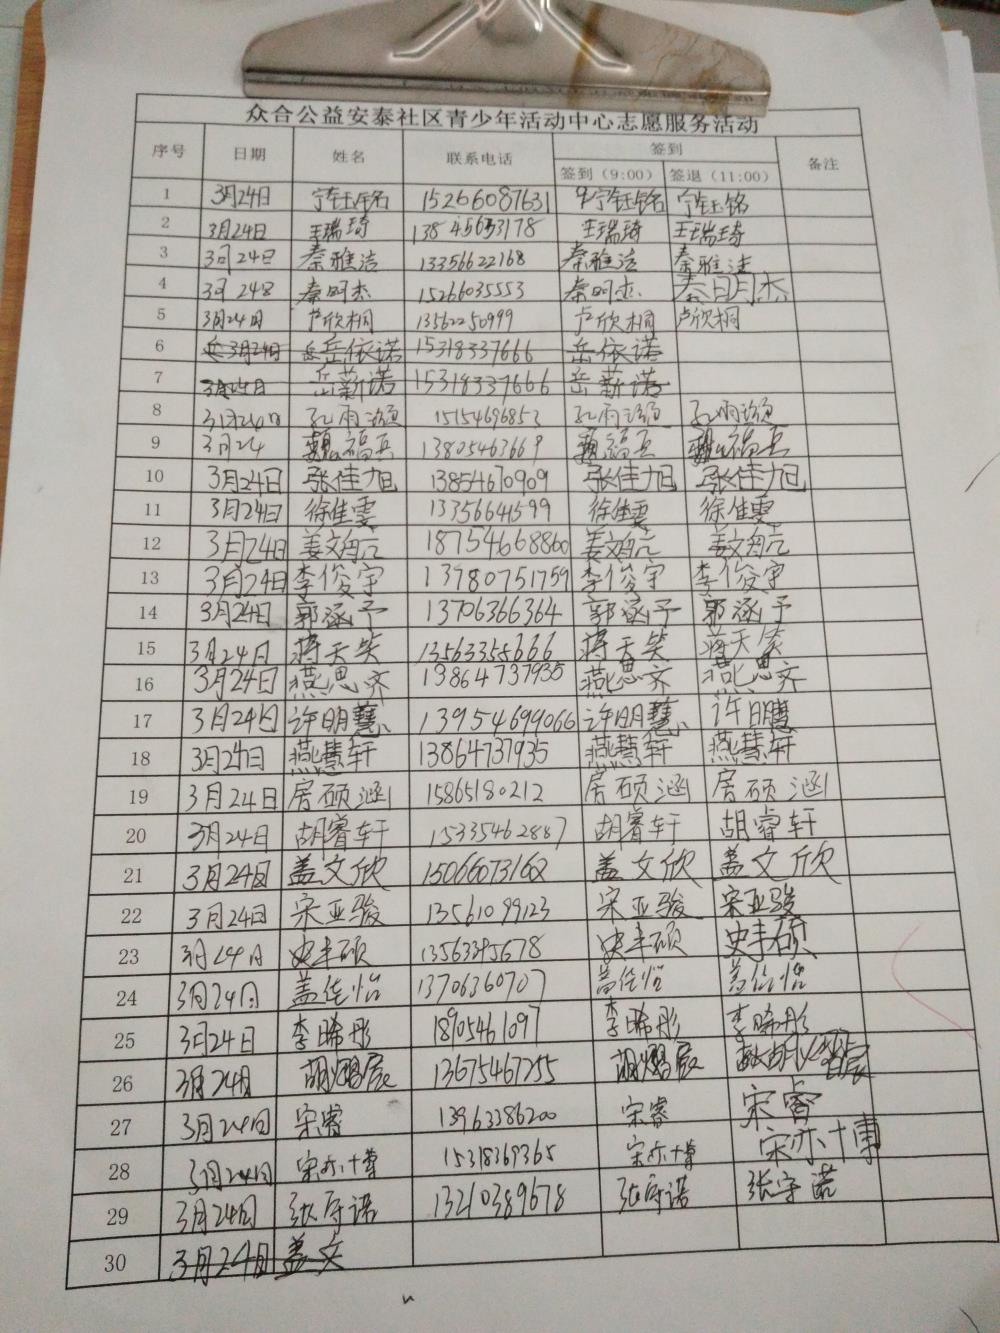 众合公益安泰社区青少年活动中心志愿服务活动
序号 日期 姓名 联系电话 签到 备注
签到（9:00） 签退（11:00）
1 3月24日 宁钰铭 15266087631 宁钰铭 宁钰铭
2 3月24日 王瑞琦 王瑞琦 王瑞琦
3 3月24日 秦雅洁 13356622168 秦雅洁 秦雅洁
4 秦明杰 15266035553 秦明杰 秦明杰
5 3月24日 卢欣桐 13562250999 卢欣桐 卢欣桐
6 岳 3月24日 岳依诺 15318337666 岳依诺
7 3月24日 岳薪诺 15318337666 岳薪诺
8 3月24日 15154696853
9 3月24 魏福兵 13805463669 魏福兵 魏福兵
10 3月24日 张佳旭 13854670909 张佳旭 张佳旭
11 3月24日 徐佳雯 13356641599 徐佳雯 徐佳雯
12 3月24日 18754668860
13 3月24日 李俊宇 13780751759 李俊宇 李俊宇
14 3月24日 郭涵予 13706366364 郭涵予 郭涵予
15 3月24日 蒋天笑 13563355666 蒋天笑 蒋天笑
16 3月24日 燕思齐 13864737935 燕思齐 燕思齐
17 3月24日 许明慧 13954694066 许明慧 许明慧
18 3月24日 燕慧轩 13864737935 燕慧轩 燕慧轩
19 3月24日 房硕涵 15865180212 房硕涵 房硕涵
20 3月24日 胡睿轩 15335462887 胡睿轩 胡睿轩
21 3月24日 盖文欣 15066073162 盖文欣 盖文欣
22 3月24日 宋亚骏 13561099123 宋亚骏 宋亚骏
23 3月24日 史丰硕 13563395678 史丰硕 史丰硕
24 3月24日 盖佳怡 13706360707 盖佳怡 盖佳怡
25 3月24日 李晞彤 18905461097 李晞彤 李晞彤
26 3月24日 13675467255
27 3月24日 宋睿 13963386200 宋睿 宋睿
28 3月24日 宋亦博 15318369365 宋亦博 宋亦博
29 3月24日 张守诺 13210389678 张守诺 张守诺
30 3月24日 盖文